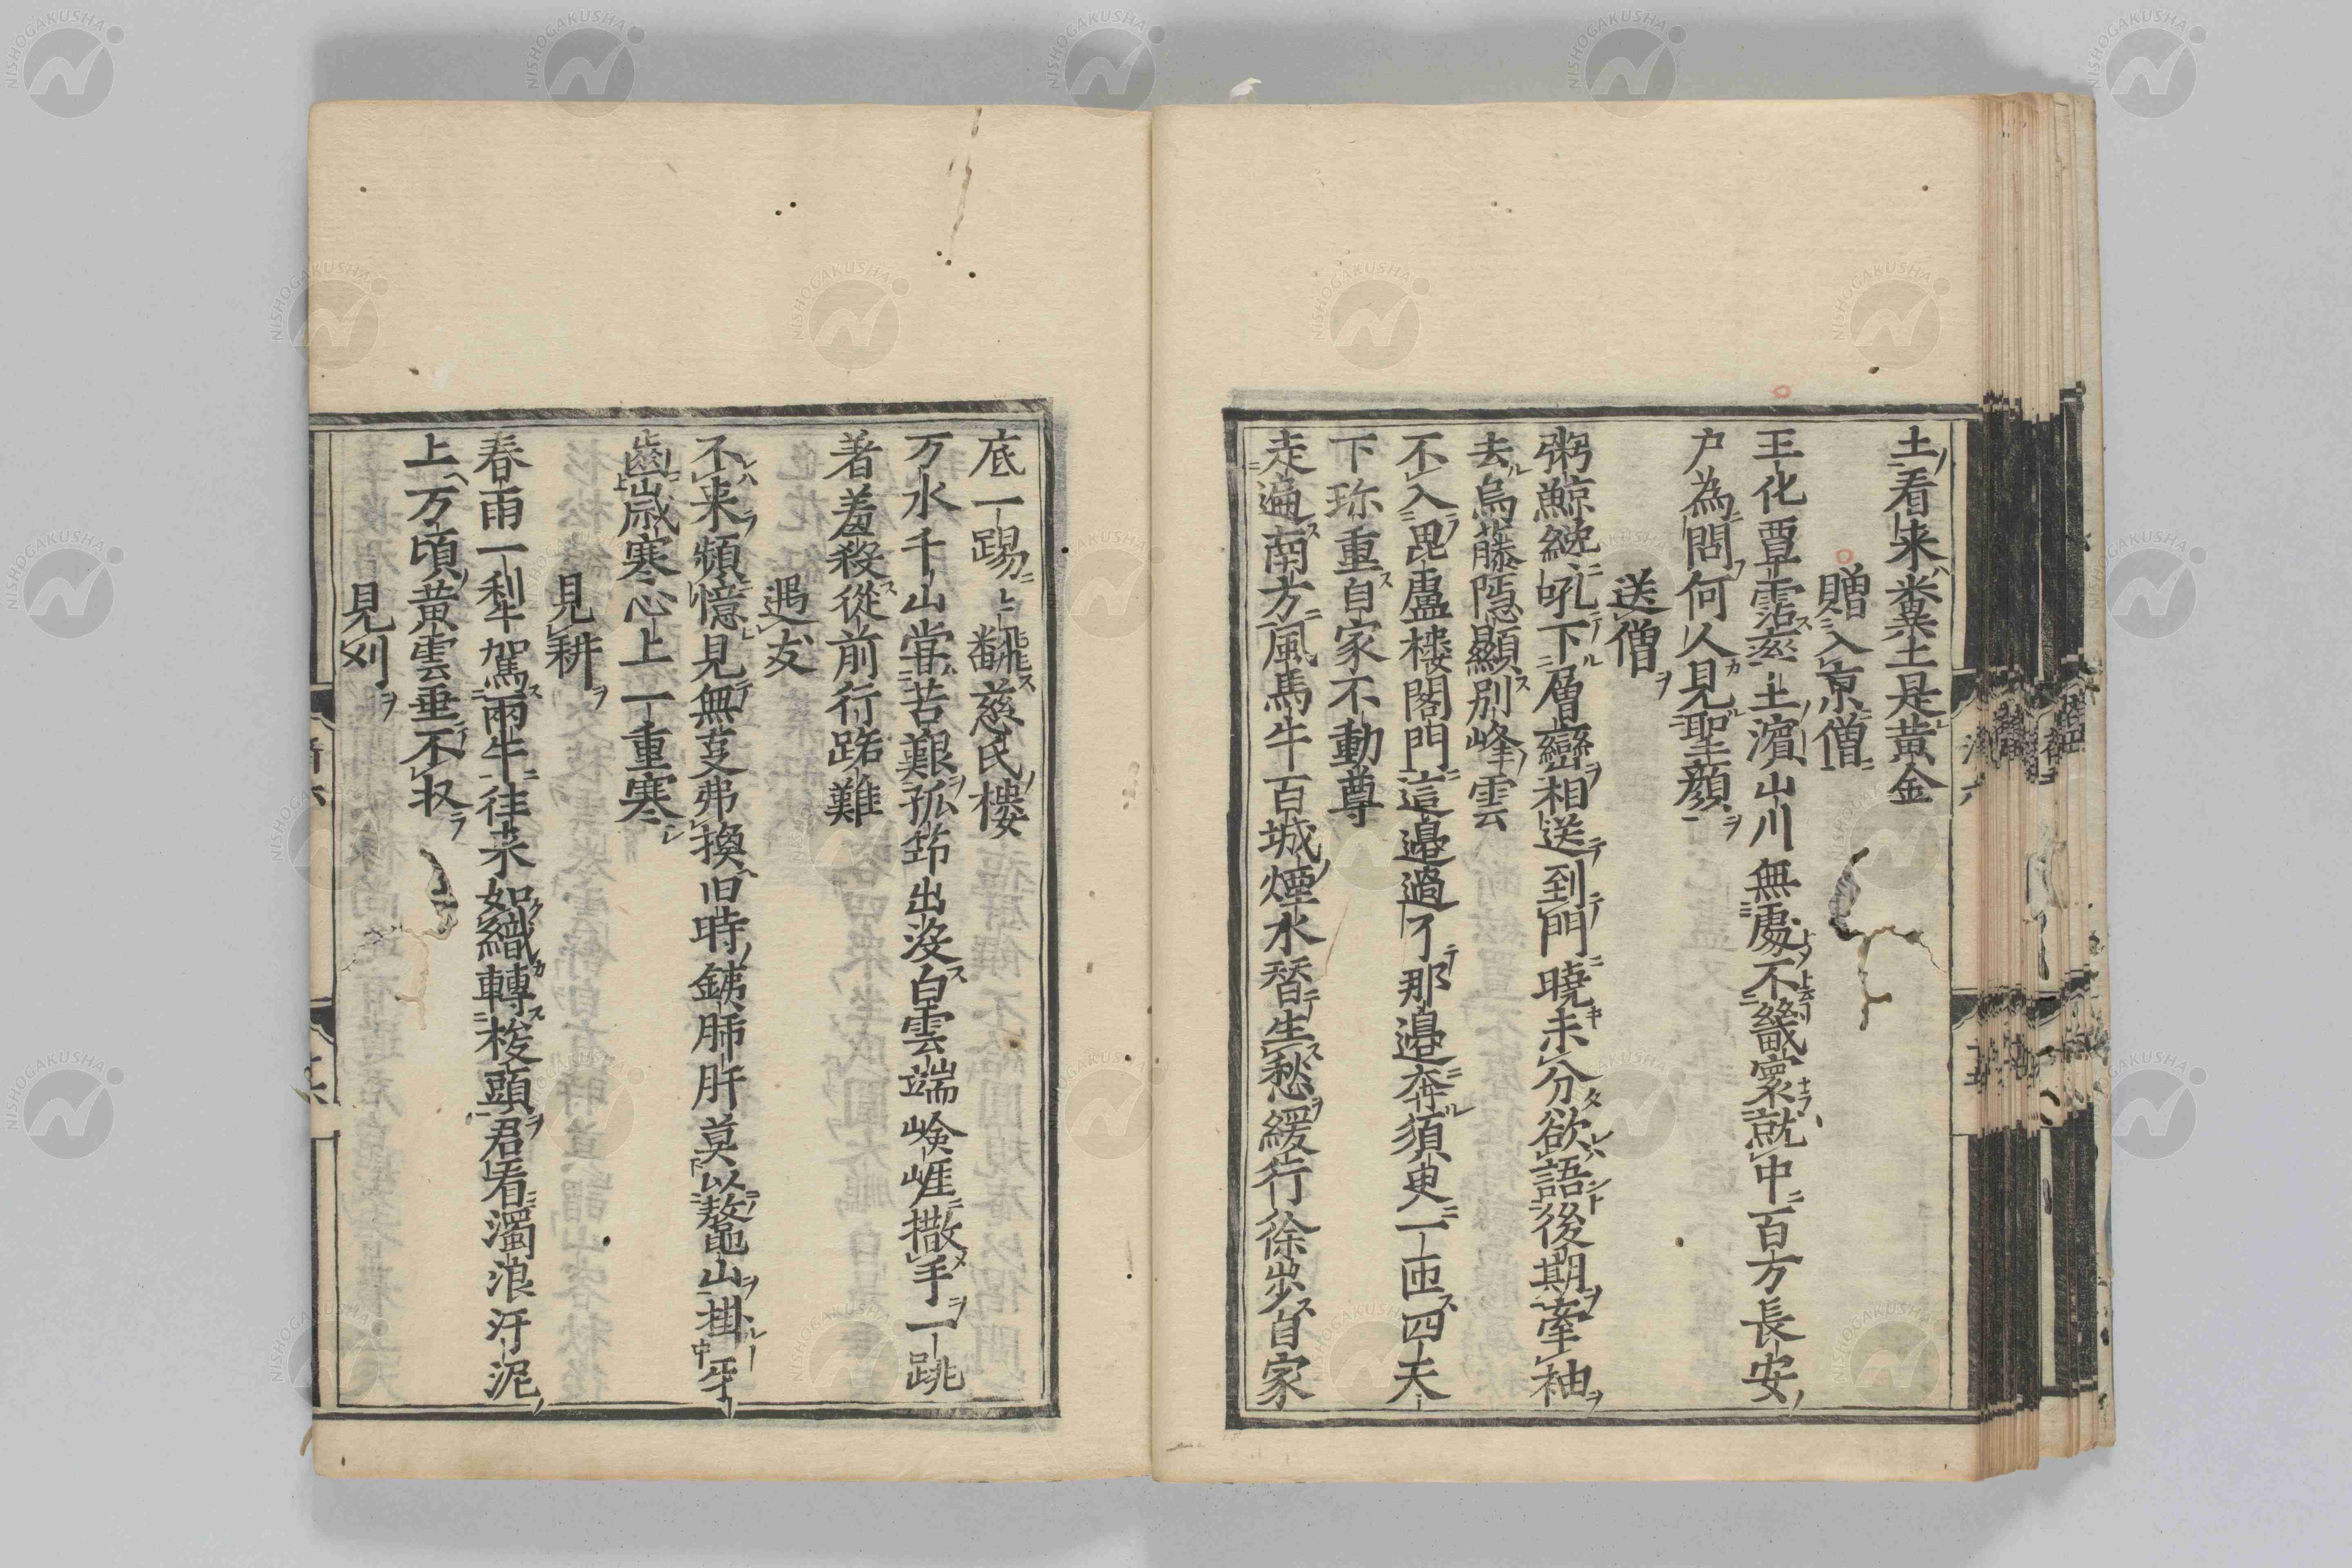 土看来糞土是黄金
贈入京僧
王化覃霑率土濱山川無處不畿寰就中百万長安
户為問何人見聖顔
送僧
粥鯨纔吼下層巒相送到門暁未分欲語後期牽袖
去烏藤隠顯別峰雲
不入毘盧楼閣門這邉過了那邉奔須臾一匝四天
下珎重自家不動尊
走遍南方風馬牛百城煙水替生愁緩行徐歩自家
底一踢々翻慈氏楼
万水千山嘗苦艱孤筇出没白雲端嶮崕撒手一跳
著羞殺從前行路難
遇友
不来頻憶見無荳弗換旧時銕肺肝莫以鼇山掛牙
齒歳寒心上一重寒
見耕
春雨一犁駕兩牛徃来如織轉梭頭君看濁浪汙泥
上万頃黄雲垂不収
見刈